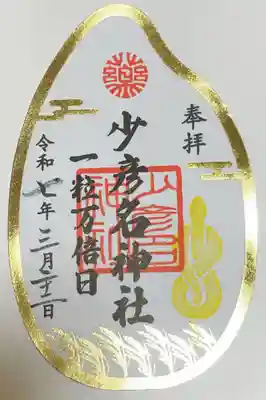 藥
奉拝
少彦名神社
一粒万倍日
令和七年三月二十二日